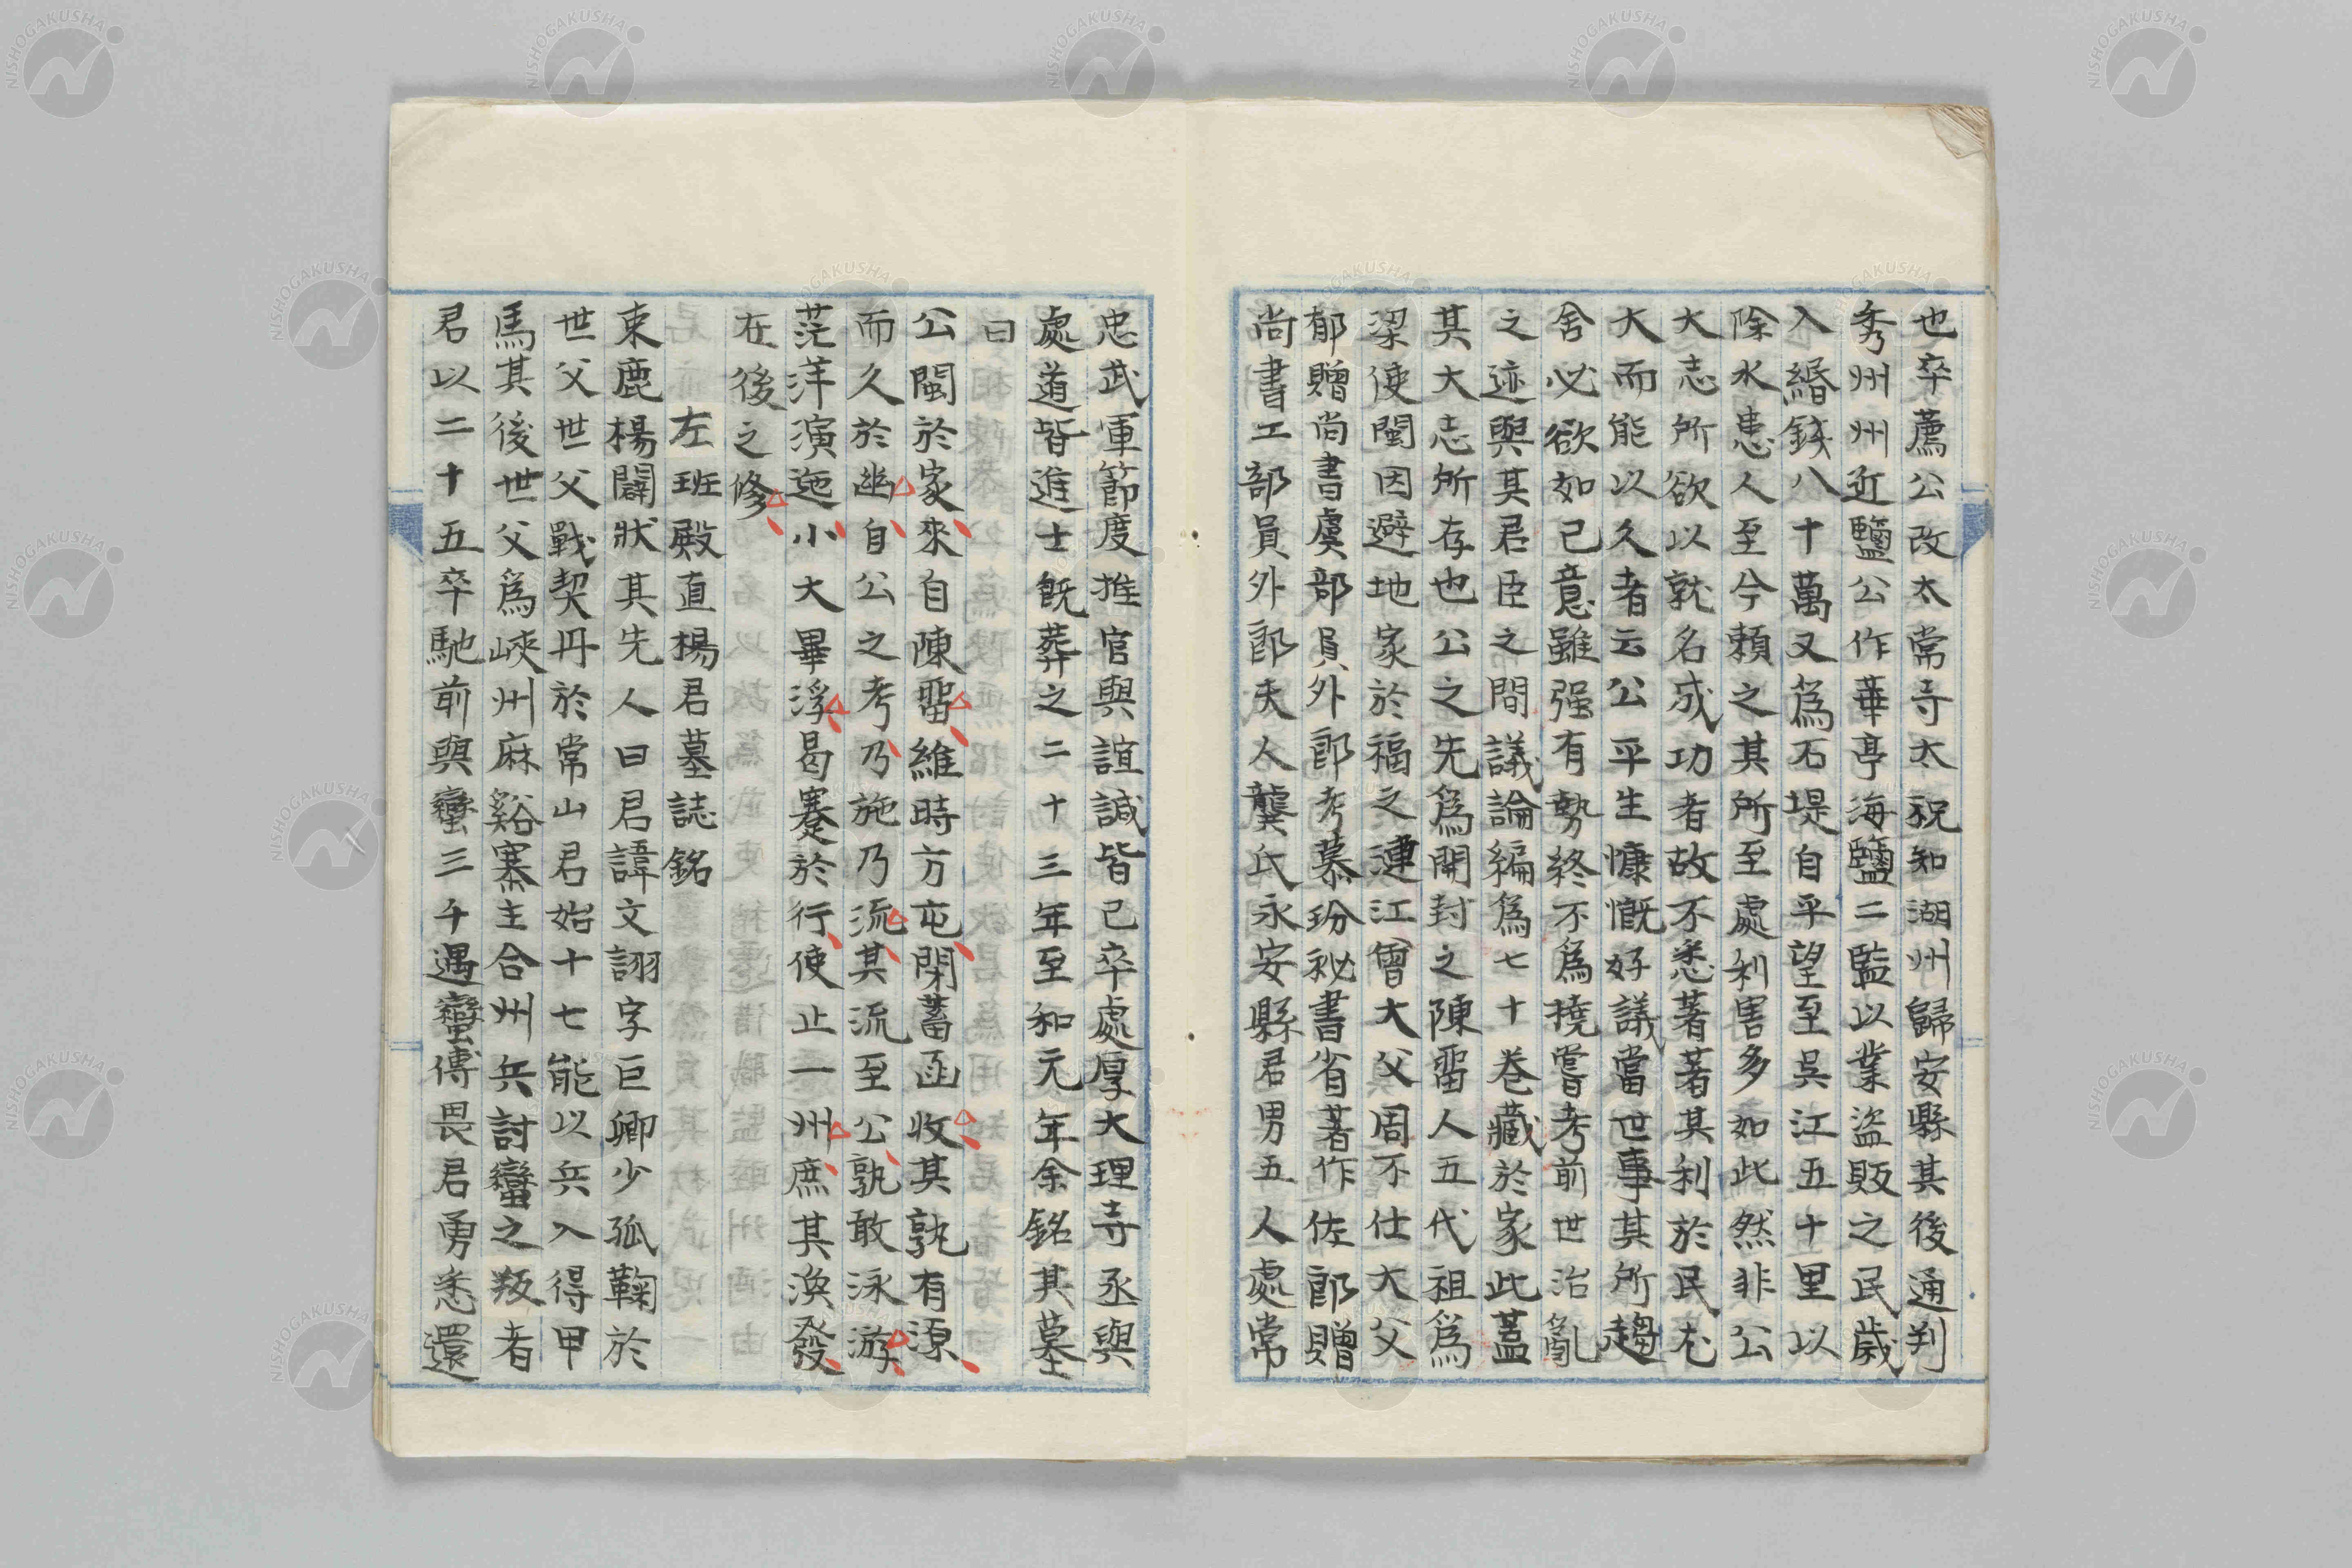 也卒薦公改太常寺太祝知湖州歸安縣其後通判
秀州州近鹽公作華亭海鹽二監以業盜販之民歲
入緡錢八十萬又爲石堤自平望至吳江五十里以
除水患人至今賴之其所至處利害多如此然非公
大志所欲以就名成功者故不悉著著其利於民尤
大而能以久者云公平生慷慨好議當世事其所趨
舍必欲如己意雖强有勢終不爲撓嘗考前世治亂
之迹與其君臣之間議論編爲七十卷藏於家此蓋
其大志所存也公之先爲開封之陳留人五代祖爲
梁使閩因避地家於福之連江曾大父周不仕大父
郁贈尚書虞部員外郎考慕玢秘書省著作佐郎贈
尚書工部員外郎夫人龔氏永安縣君男五人處常
忠武軍節度推官與誼諴皆已卒處厚大理寺丞與
處道皆進士既葬之二十三年至和元年余銘其墓
曰
公閩於家來自陳留維時方屯閉蓄函收其孰有源
而久於幽自公之考乃施乃流其流至公孰敢泳游
茫洋演迤小大畢浮曷蹇於行使止一州庶其渙發
在後之修
左班殿直楊君墓誌銘
束鹿楊闢狀其先人曰君諱文詡字巨卿少孤鞠於
世父世父戰契丹於常山君始十七能以兵入得甲
馬其後世父爲峽州麻谿寨主合州兵討蠻之叛者
君以二十五卒馳前與蠻三千遇蠻傳畏君勇悉還
NISHOGAKUSHA